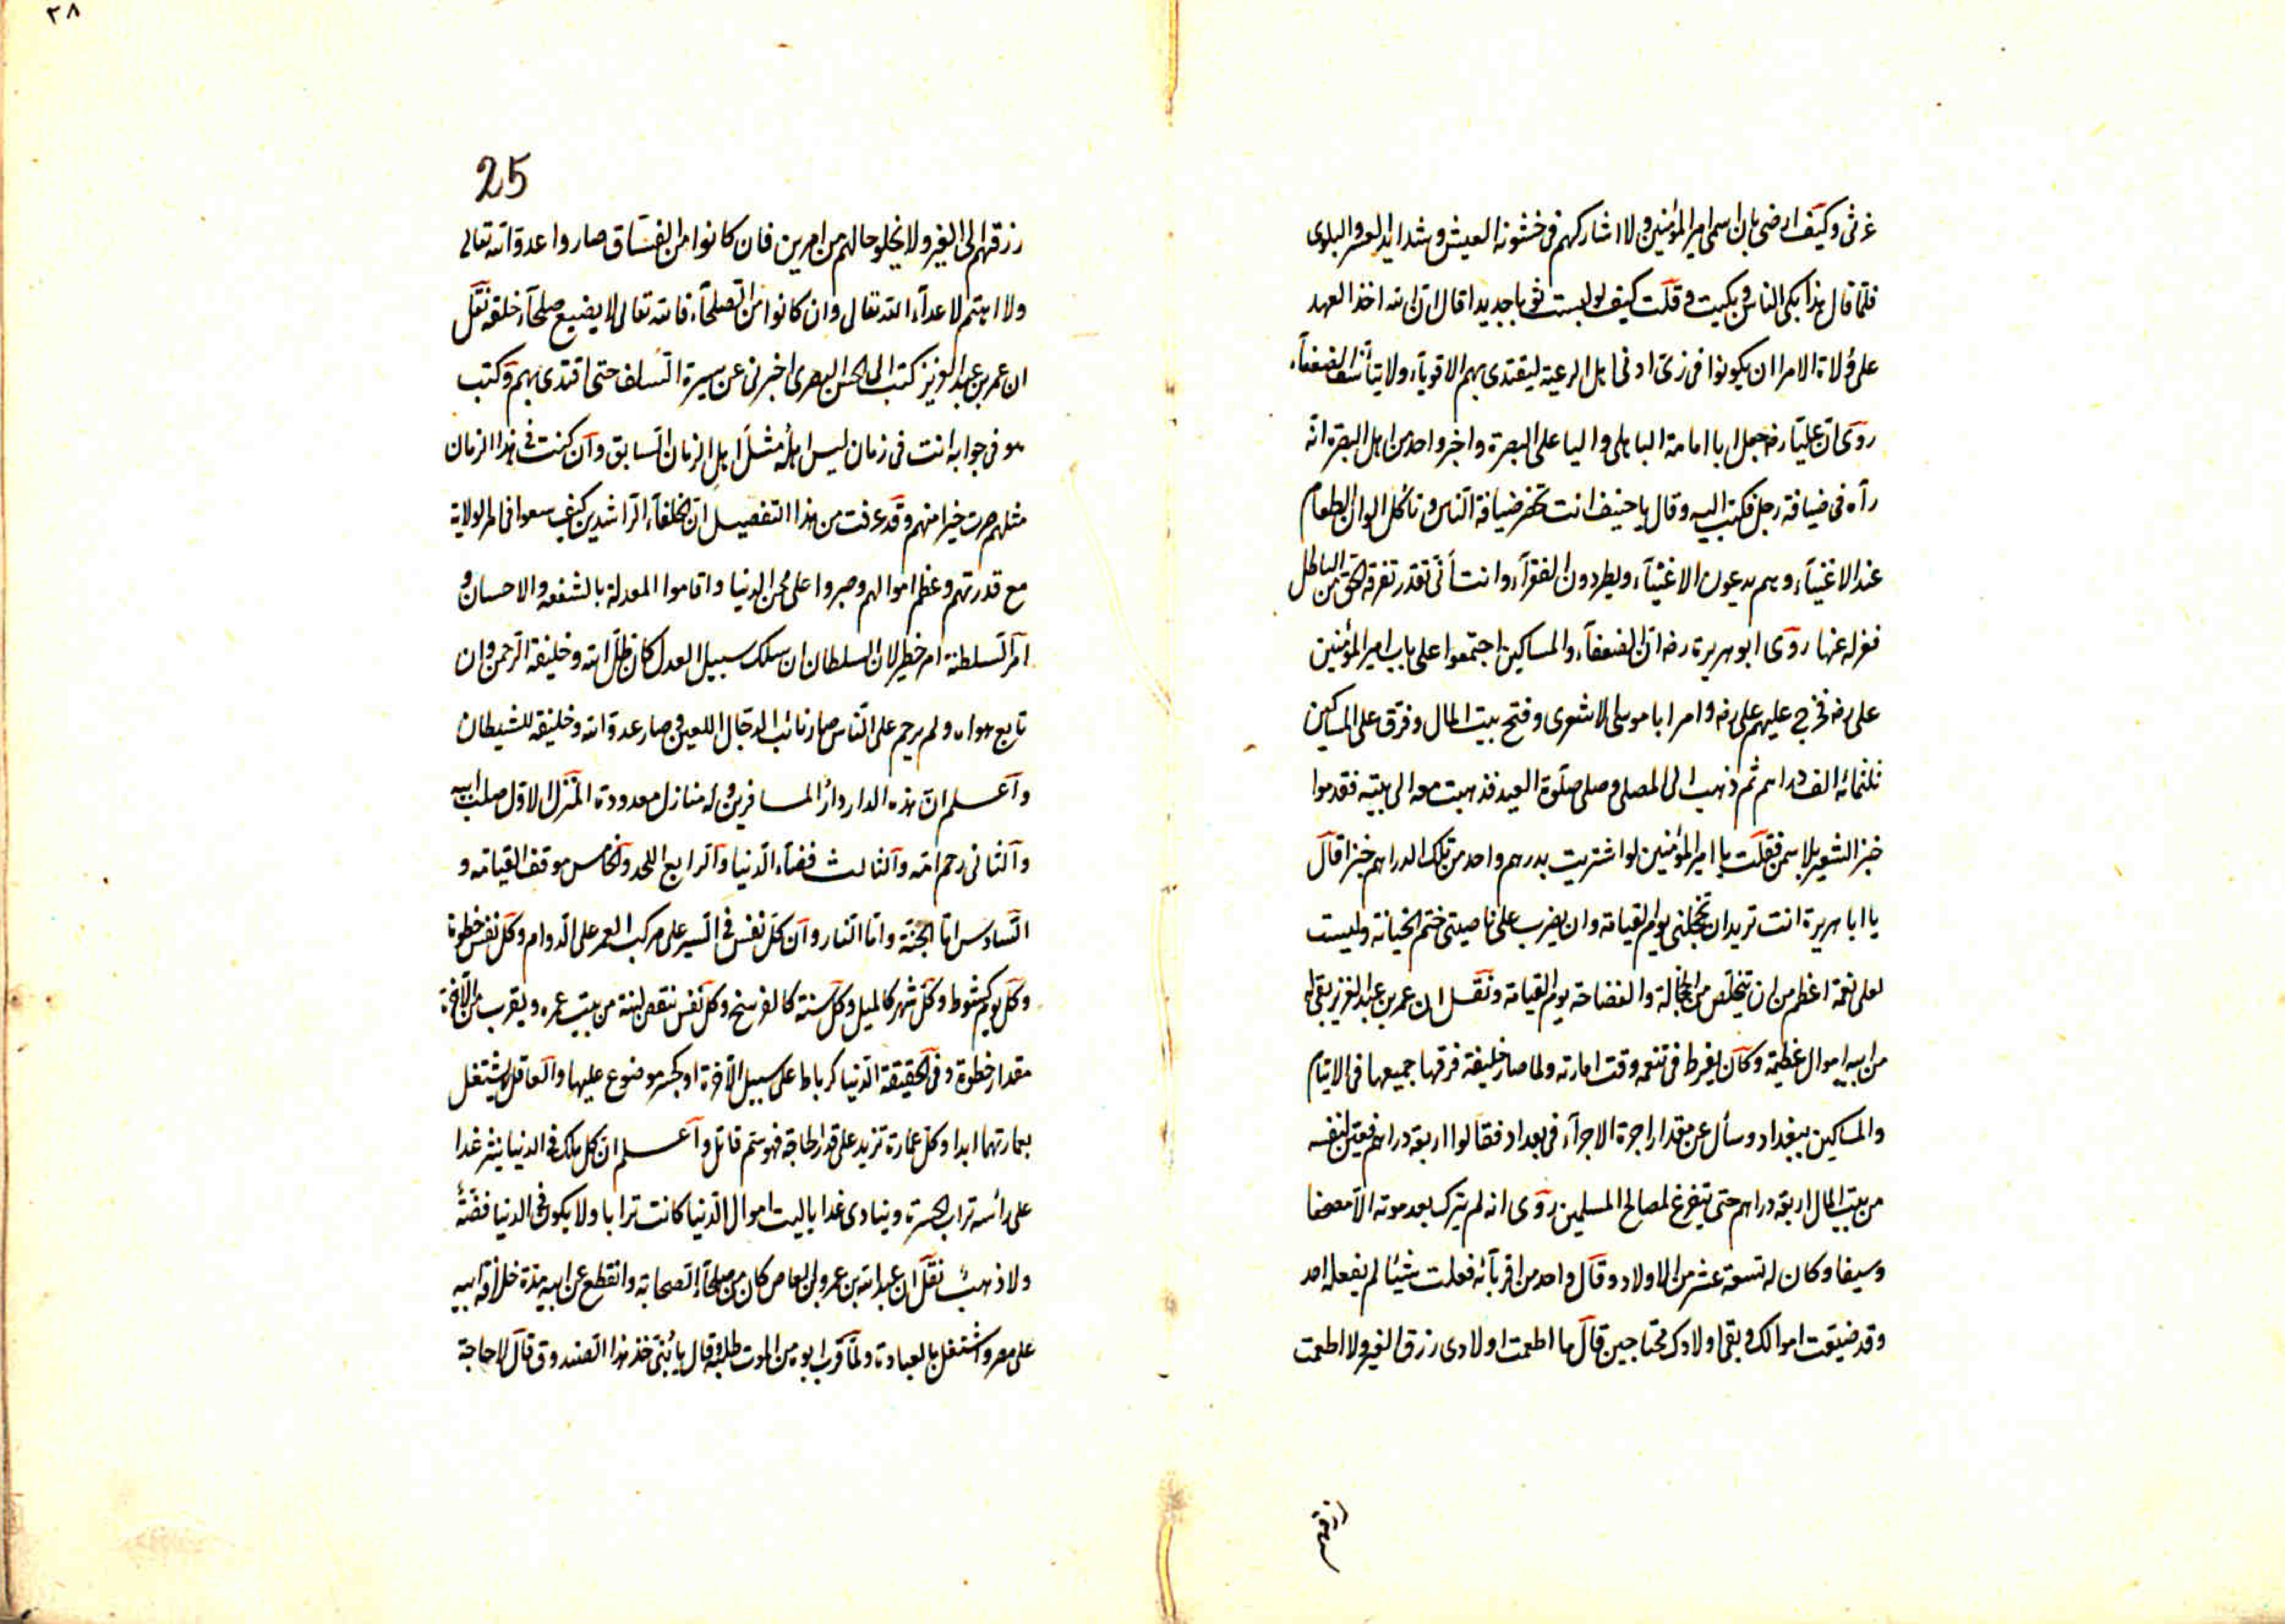 غرثى وكيف ارضى بان اسمى امير المؤمنين ولا اشاركهم فى خشونة العيش وشدايد العسر والبلوى
فلمّا قال هذا بكى الناس وبكيت وقلت كيف لو لبست ثوبا جديدا قال انّ الله اخذ العهد
على وُلاة الامر ان يكونوا فى زىّ ادنى اهل الرعية ليقتدى بهم الاقوياء ولا يتأسّف الضعفاء
روى انّ عليّا رضه جعل ابا امامة الباهلى واليا على البصرة واخبر واحد من اهل البصرة انّه
رآه فى ضيافة رجل فكتب اليه وقال يا حنيف انت تحضر ضيافة النّاس وتأكل الوان الطعام
عند الاغنياء وهم يدعون الاغنياء ويطردون الفقراء وانت أنّى تقدر تفرقة الحق من الباطل
فعزله عنها روى ابو هريرة رضه انّ الضعفاء والمساكين اجتمعوا على باب امير المؤمنين
على رضه فخرج عليهم على رضه وامر ابا موسى الاشعرى وفتح بيت المال وفرّق على المساكين
ثلثمائة الف دراهم ثم ذهب الى المصلى وصلى صلوة العيد فذهبت معه الى بيته فقدموا
خبز الشعير بلا سمن فقلت يا امير المؤمنين لو اشتريت بدرهم واحد من تلك الدراهم خبزا قال
يا ابا هريرة انت تريد ان تخجلنى يوم القيامة وان يضرب على ناصيتى ختم الخيانة وليست
لعلى نعمة اعظم من ان يتخلّص من الخجالة والفضاحة يوم القيامة ونقل ان عمر بن عبد العزيز بقى له
من ابيه اموال عظيمة وكان يفرط فى تنعمه وقت امارته ولما صار خليفة فرقها جميعها فى الايتام
والمساكين ببغداد وسأل عن مقدار اجرة الاجراء فى بغداد فقالوا اربعة دراهم فعيّن لنفسه
من بيت المال اربعة دراهم حتى يتفرغ لمصالح المسلمين روى انه لم يترك بعد موته الّا مصحفا
وسيفا وكان له تسعة عشر من الاولاد وقال واحد من اقربائه فعلت شيئا لم يفعله احد
وقد ضيّعت اموالك وبقى اولادك محتاجين قال ما اطعمت اولادى رزق الغير ولا اطعمت
رزقهم
25
رزقهم الى الغير ولا يخلو حالهم من امرين فان كانوا من الفسّاق صاروا عدوّ الله تعالى
ولا اهتم لاعداء الله تعالى وان كانوا من الصلحاء فالله تعالى لا يضيع صلحاء خلقه نقل
ان عمر بن عبد العزيز كتب الى الحسن البصرى اخبرنى عن سيرة السلف حتى اقتدى بهم وكتب
هو فى جوابه انت فى زمان ليس اهله مثل اهل الزمان السابق وان كنت فى هذا الزمان
مثلهم صرت خيرا منهم وقد عرفت من هذا التفصيل انّ الخلفاء الراشدين كيف سعوا فى امر الولاية
مع قدرتهم وعظم اموالهم وصبروا على محن الدنيا واقاموا المعدلة بالشفقة والاحسان و
امر السلطنة امر خطير لان السلطان ان سلك سبيل العدل كان ظلّ الله وخليفة الرحمن وان
تابع هواه ولم يرحم على النّاس صار نائب الدجّال اللعين وصار عدوّ الله وخليفة للشيطان
واعلم انّ هذه الدار دارُ المسافرين وله منازل معدودة المنزل الاوّل صلب ابيه
والثانى رحم امّه والثالث فضاء الدّنيا والرابع اللحد والخامس موقف القيامة و
السّادس امّا الجنّة وامّا النّار وان كلّ نفس فى السير على مركب العمر على الدوام وكلّ نفس خطوة
وكل يوم كشوط وكلّ شهر كالميل وكل سنة كالفرسخ وكلّ نفس تنقص لبنة من بيت عمره ويقرب من الآخرة
مقدار خطوة وفى الحقيقة الدّنيا كرباط على سبيل الآخرة او كجسر موضوع عليها والعاقل لا يشتغل
بعمارتهما ابدا وكل عمارة تزيد على قدر الحاجة فهو سمّ قاتل واعلم انّ كل ملك فى الدنيا ينثر غدا
على رأسه تراب الحسرة وينادى غدا ياليت اموال الدّنيا كانت ترابا ولا يكون فى الدنيا فضّةٌ
ولا ذهبٌ نقل ان عبد الله بن عمرو بن العاص كان من صلحاء الصحابة وانقطع عن ابيه مدّة خلافة ابيه
على مصر واشتغل بالعبادة ولمّا قرب ابوه من الموت طلبه وقال يا بُنىّ خذ هذا الصندوق قال لا حاجة
٣٨